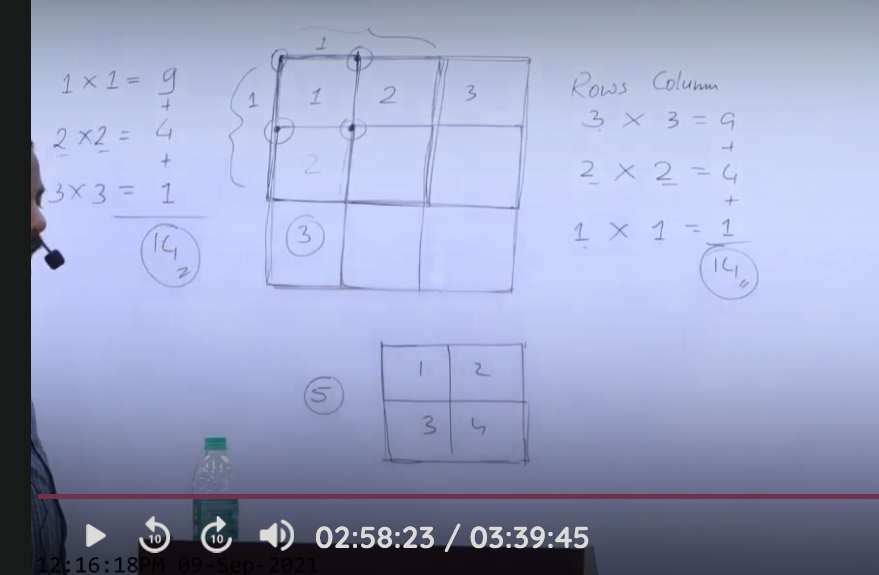 1 × 1 = 9
+
2 × 2 = 4
+
3 × 3 = 1
14
1
1
1 2 3
2
3
Rows Column
3 × 3 = 9
+
2 × 2 = 4
+
1 × 1 = 1
14
5
1 2
3 4
10 10 02:58:23 / 03:39:45
12:16:18PM 09-Sep-2021